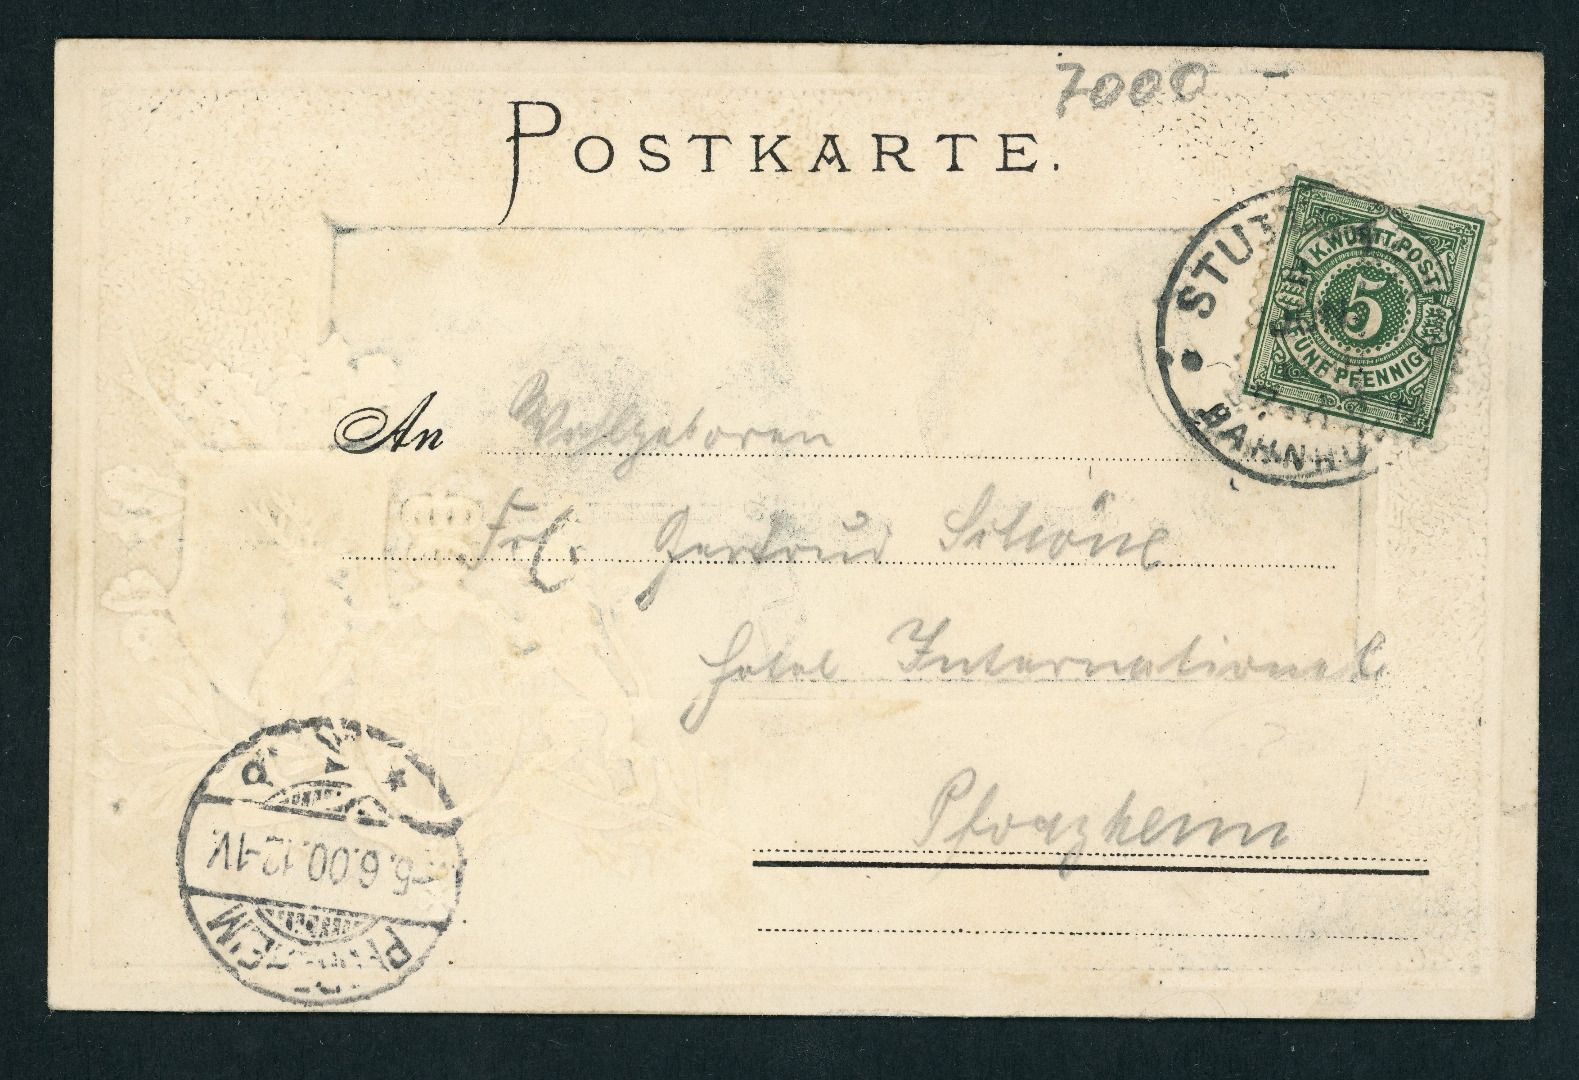 7000 -
POSTKARTE.
STU
K. WÜRTT. POST
5
FÜNF PFENNIG
BAHNHO
An Wohlgeboren
Frl. Gertrud
Hotel International
Pforzheim
5.6.00.12-1V.